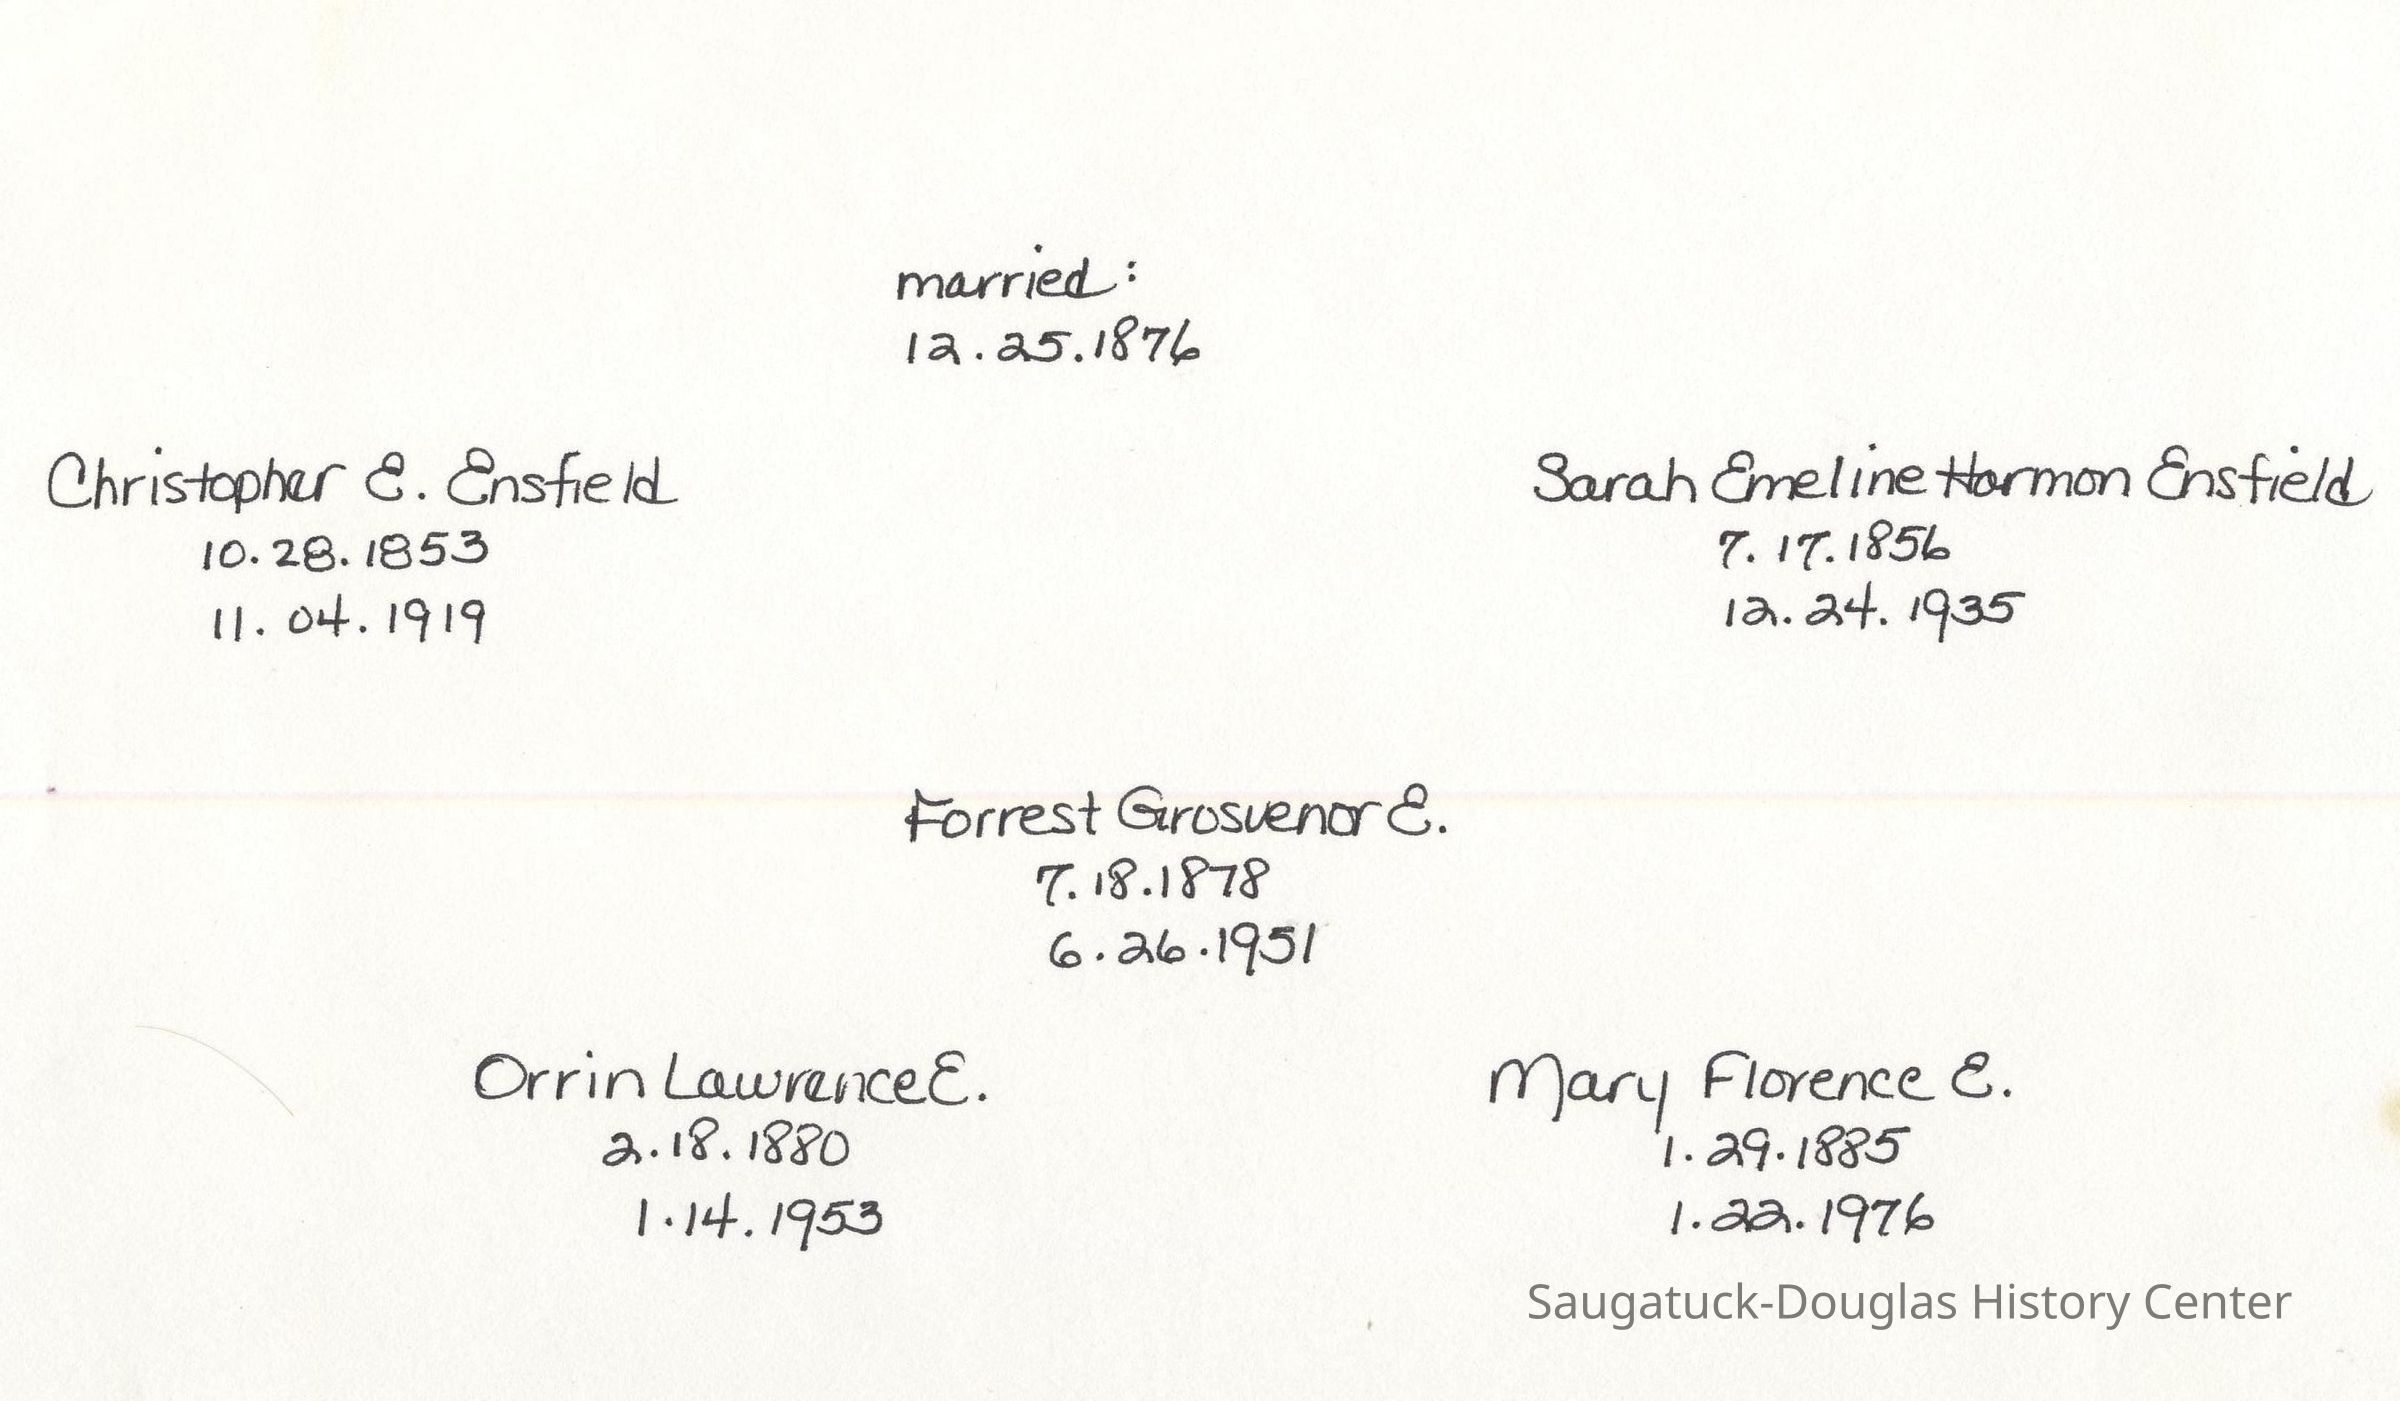 married:
12.25.1876
Christopher E. Ensfield
10.28.1853
11.04.1919
Sarah Emeline Harmon Ensfield
7.17.1856
12.24.1935
Forrest Grosvenor E.
7.18.1878
6.26.1951
Orrin Lawrence E.
2.18.1880
1.14.1953
Mary Florence E.
1.29.1885
1.22.1976
Saugatuck-Douglas History Center